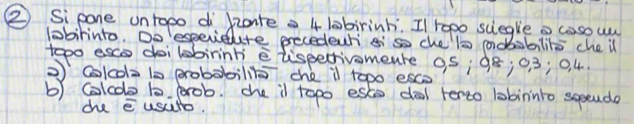 ② Si pone un topo di fronte a 4 labirinti. Il topo sceglie a caso un
labirinto. Da esperienze precedenti si sa che la probabilità che il
topo esca dai labirinti è rispettivamente 0,5 ; 0,8 ; 0,3 ; 0,4.
a) Calcola la probabilità che il topo esca.
b) Calcola la prob. che il topo esca dal terzo labirinto sapendo
che è uscito.